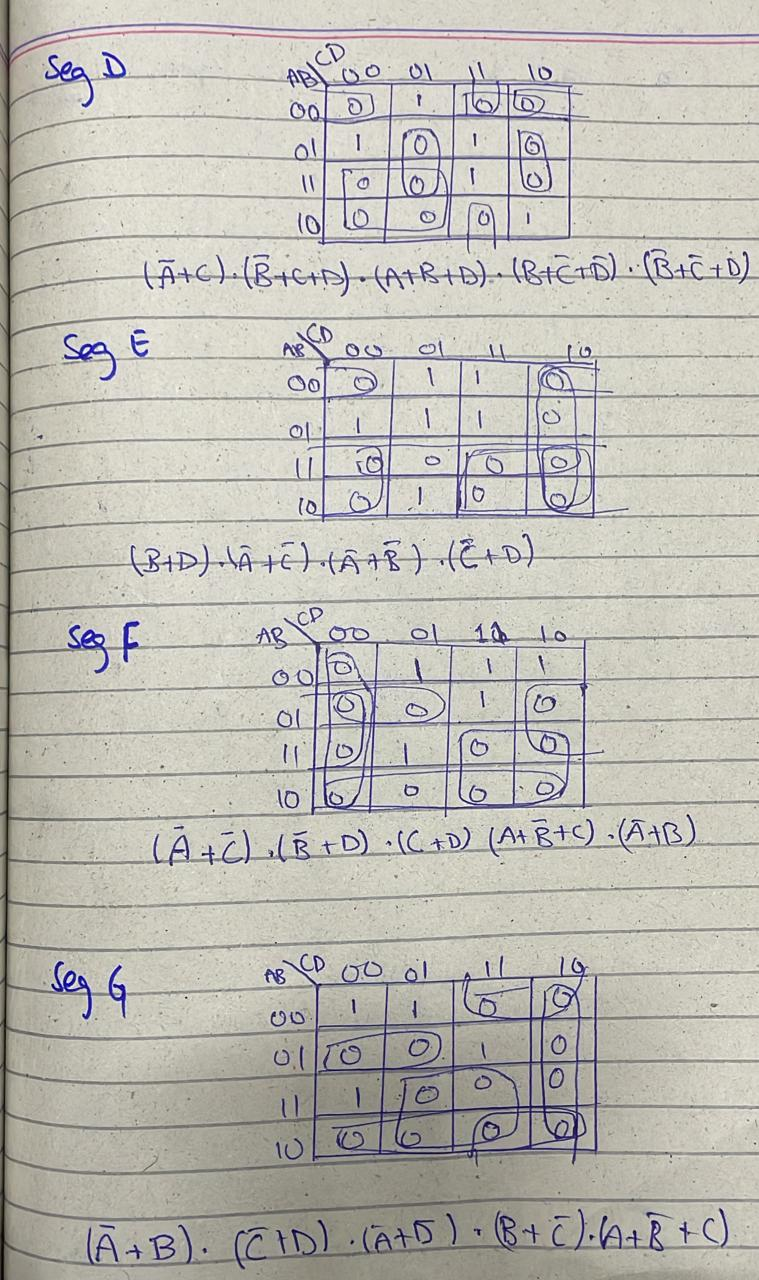 Seg D
AB\CD 00 01 11 10
00 0 1 0 0
01 1 0 1 0
11 0 0 1 0
10 0 0 0 1
(Ā+C)·(B̄+C+D̄)·(A+B+D)·(B+C̄+D̄)·(B̄+C̄+D)
Seg E
AB\CD 00 01 11 10
00 0 1 1 0
01 1 1 1 0
11 0 0 0 0
10 0 1 0 0
(B+D)·(Ā+C̄)·(Ā+B̄)·(C̄+D)
Seg F
AB\CD 00 01 11 10
00 0 1 1 1
01 0 0 1 0
11 0 1 0 0
10 0 0 0 0
(Ā+C̄)·(B̄+D)·(C+D)(A+B̄+C)·(Ā+B)
Seg G
AB\CD 00 01 11 10
00 1 1 0 0
01 0 0 1 0
11 1 0 0 0
10 0 0 0 0
(Ā+B)·(C̄+D)·(Ā+D̄)·(B+C̄)·(A+B̄+C)